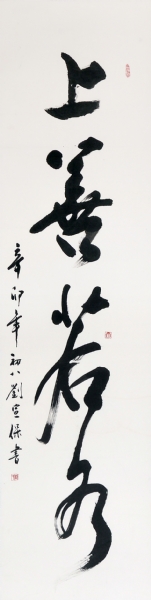 上善若水
辛卯年初八劉宣保書